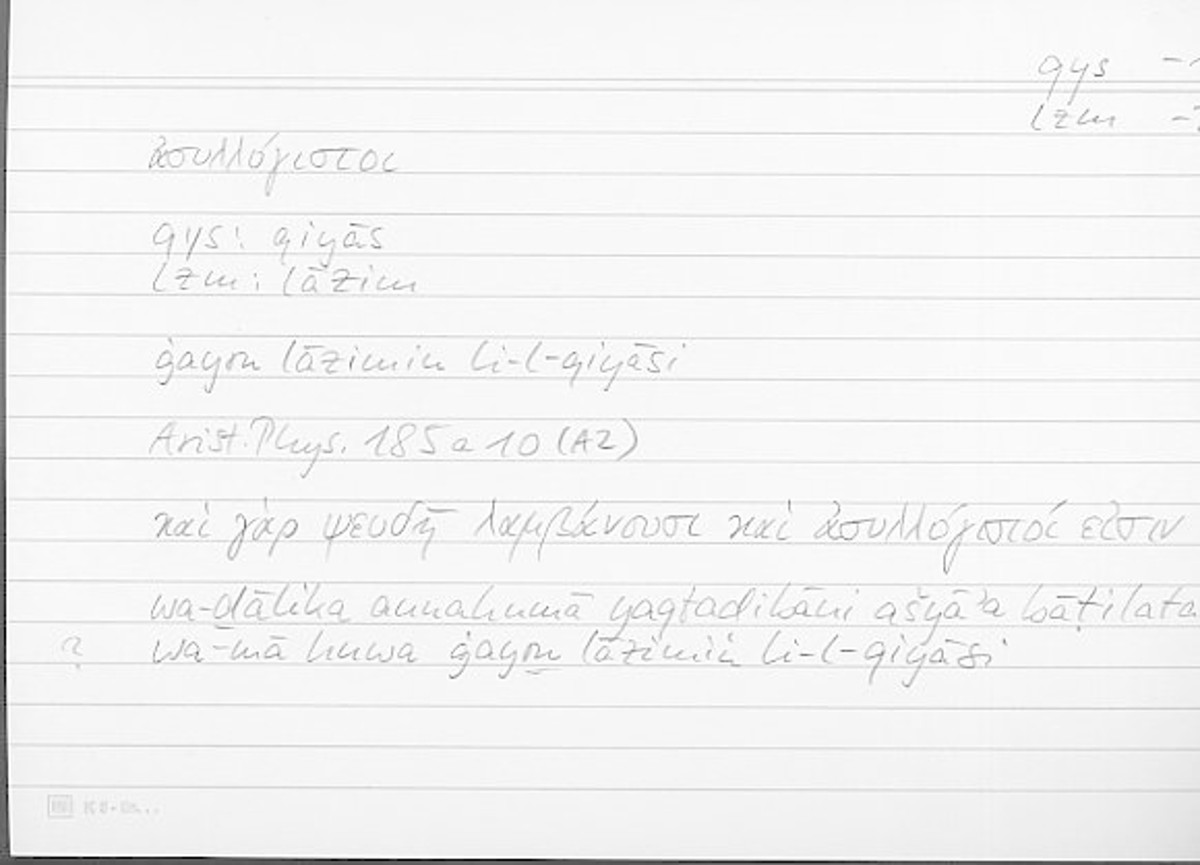 qys -1
lzm -2
ἀσυλλόγιστοι
qys: qiyās
lzm: lāzim
ġayru lāzimin li-l-qiyāsi
Arist. Phys. 185 a 10 (A2)
καὶ γὰρ ψευδῆ λαμβάνουσι καὶ ἀσυλλόγιστοί εἰσιν
wa-ḏālika annahumā yaqtaḍibāni ašyāʾa bāṭilata
? wa-mā huwa ġayru lāzimin li-l-qiyāsi